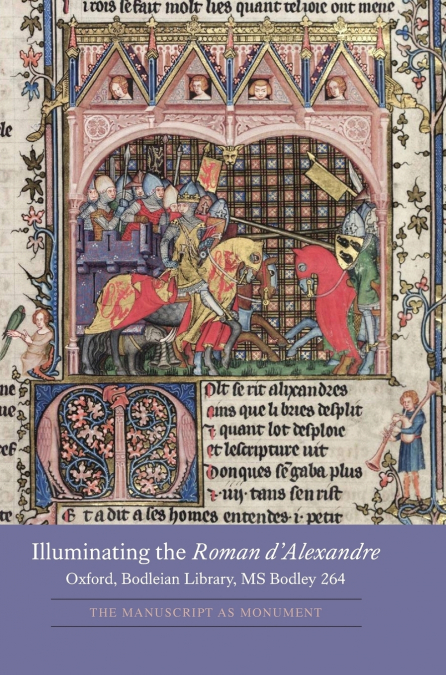 i rois se fait molt lies quant tel ioie ont mene
le
Olt se rit alixandres
ains que li bries desplit
⁊ quant lot desploie
et lescripture uit
Donques se gaba plus
⁊ .iiij. tans sen rist
E t a dit a ses homes entendes .i. petit
Illuminating the Roman d'Alexandre
Oxford, Bodleian Library, MS Bodley 264
THE MANUSCRIPT AS MONUMENT